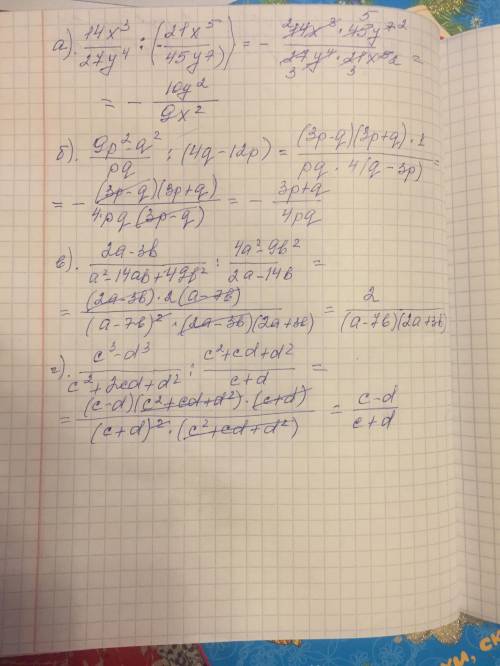 а). 14x³/27y⁴ : (-21x⁵/45y⁷) = - 14x³ · 45y⁷/27y⁴ · 21x⁵ =
= - 10y²/9x²
б). 9p² q²/pq : (4q - 12p) = (3p-q)(3p+q) · 1/pq · 4(q - 3p) =
= - (3p-q)(3p+q)/4pq(3p-q) = - 3p+q/4pq
в). 2a-3b/a²-14ab+49b² : 4a²-9b²/2a-14b =
= (2a-3b) · 2(a-7b)/(a-7b)² · (2a-3b)(2a+3b) = 2/(a-7b)(2a+3b)
г). c³-d³/c²+2cd+d² : c²+cd+d²/c+d =
= (c-d)(c²+cd+d²) · (c+d)/(c+d)² · (c²+cd+d²) = c-d/c+d